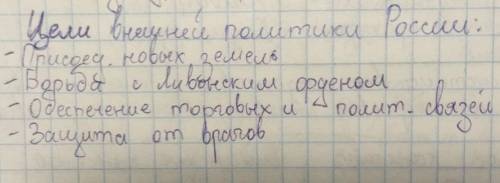 Цели внешней политики России:
- Присоед. новых земель
- Борьба с Ливонским орденом
- Обеспечение торговых и полит. связей
- Защита от врагов